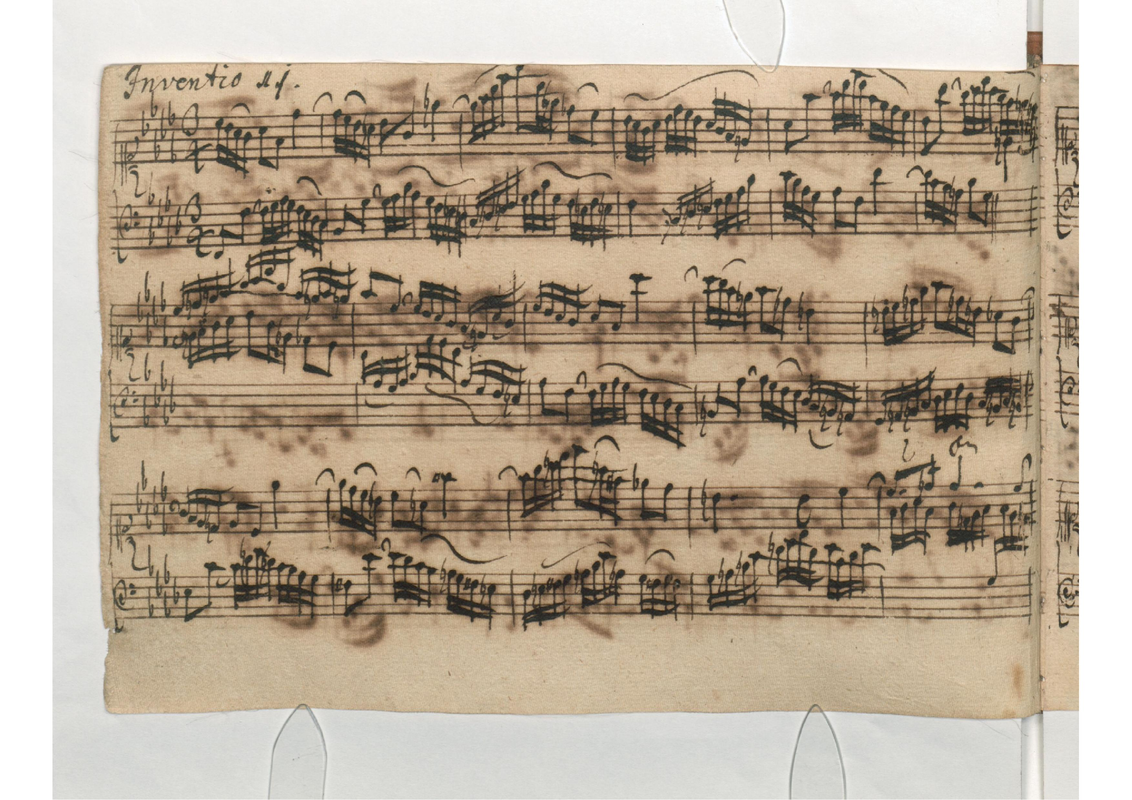 Inventio 9.